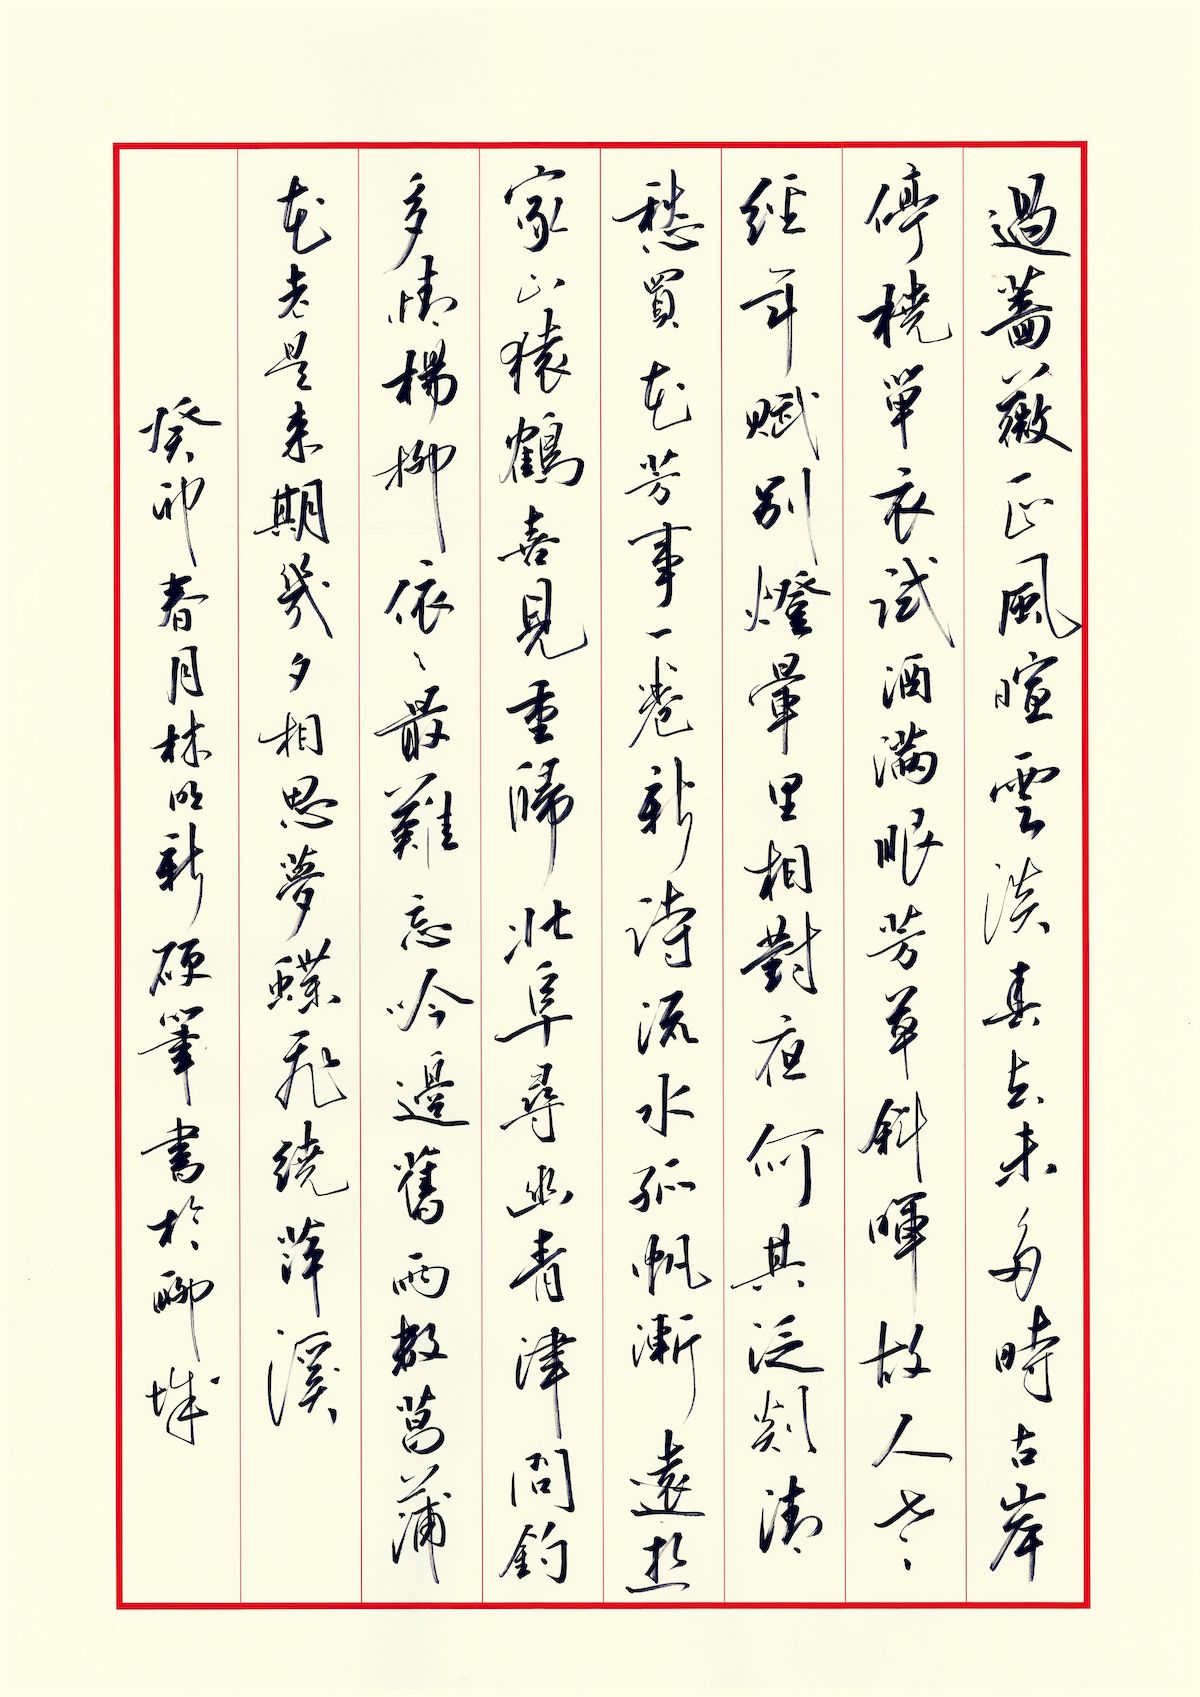 過薔薇正風暄雲淡春去未多時古岸
停橈單衣試酒滿眼芳草斜暉故人老
經年賦別燈暈里相對夜何其泛剡清
愁買花芳事一卷新詩流水孤帆漸遠想
家山猿鶴喜見重歸北阜尋幽青津問釣
多情楊柳依依最難忘吟邊舊雨數菖蒲
花老是来期幾夕相思夢蝶飛繞萍溪
癸卯春月林明新硬筆書於聊城